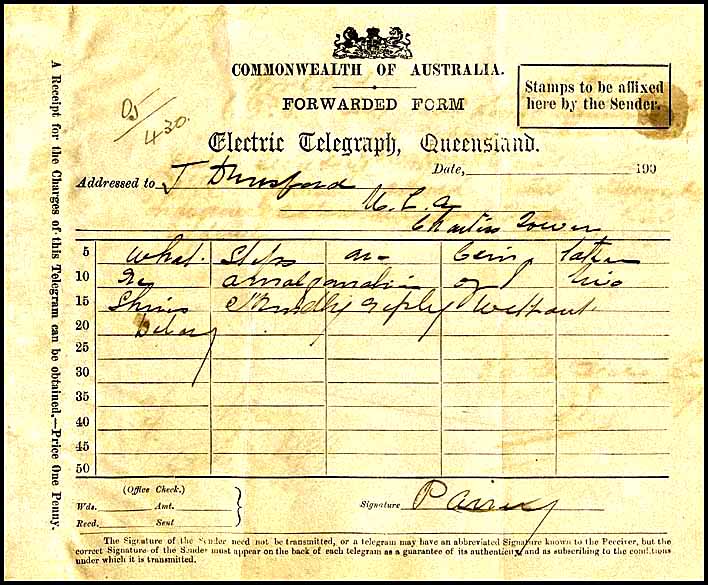 COMMONWEALTH OF AUSTRALIA.
FORWARDED FORM
Stamps to be affixed
here by the Sender.
Electric Telegraph, Queensland.
Date, 190
Addressed to J Dunsford
M. L. A
Charters Towers
5 What Steps are being taken
10 Re amalgamation of two
15 Shires Kindly reply without
20 Delay
25
30
35
40
45
50
(Office Check.)
Wds. Amt.
Recd. Sent
Signature
The Signature of the Sender need not be transmitted, or a telegram may have an abbreviated Signature known to the Receiver, but the
correct Signature of the Sender must appear on the back of each telegram as a guarantee of its authenticity, and as subscribing to the conditions
under which it is transmitted.
A Receipt for the Charges of this Telegram can be obtained.—Price One Penny.
430.